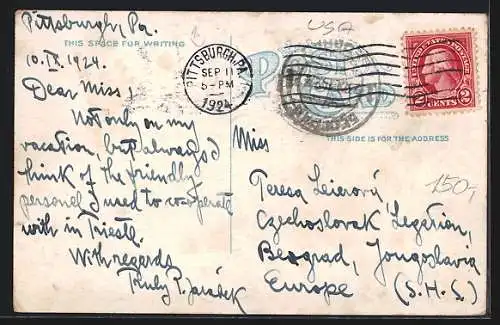 Pittsburgh, Pa.
THIS SPACE FOR WRITING
10.IX.1924.
Dear Miss,
Not only on my
vacation, but always I
think of the friendly
personel I used to cooperate
with in Trieste.
With regards
USA
PITTSBURGH, PA.
SEP 11
5-PM
1924
UNITED STATES POSTAGE
2 CENTS 2
THIS SIDE IS FOR THE ADDRESS
150,-
Miss
Teresa Leierový
Czechoslovak Legation,
Beograd, Jougoslavia
Europe (S.H.S.)